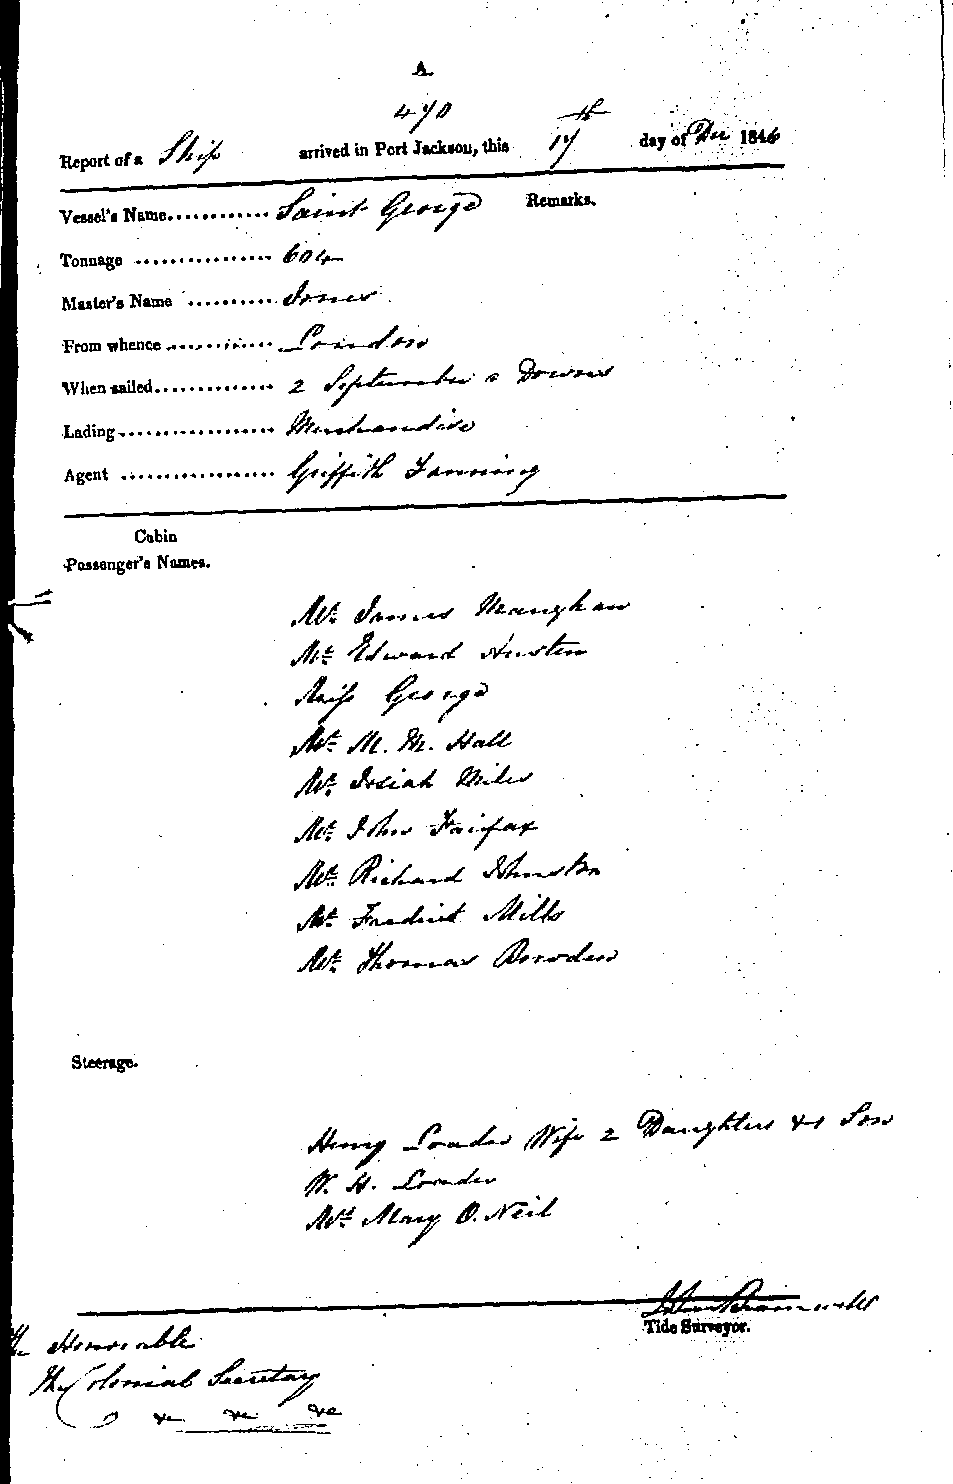 A
470
Report of a Ship arrived in Port Jackson, this 17th day of Decr 1846
Vessel's Name............ Saint George Remarks.
Tonnage ................ 604
Master's Name .......... Jones
From whence ............ London
When sailed............. 2 September & Downs
Lading.................. Merchandise
Agent .................. Griffith Fanning
Cabin
Passenger's Names.
Mr. James Maughan
Mr. Edward Austin
Miss George
Mr. M. M. Hall
Mr. Josiah Miles
Mr. John Fairfax
Mr. Richard Johnston
Mr. Fredrick Mills
Mr. Thomas Bowden
Steerage.
Henry Loader Wife 2 Daughters & 1 Son
W. H. Loader
Mrs Mary O. Neil
John
Tide Surveyor.
The Honorable
The Colonial Secretary
&c &c &c